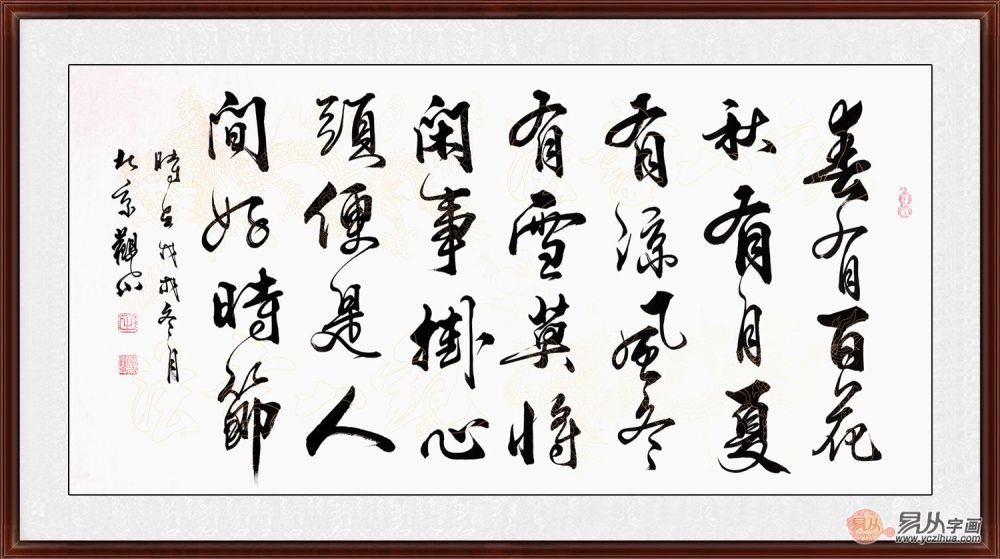 春有百花
秋有月夏
有涼風冬
有雪莫將
閑事掛心
頭便是人
間好時節
時在戊戌冬月
京觀
易从
易从字画
www.yczihua.com